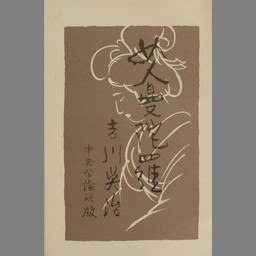 女人曼陀羅
吉川英治
中央公論社版